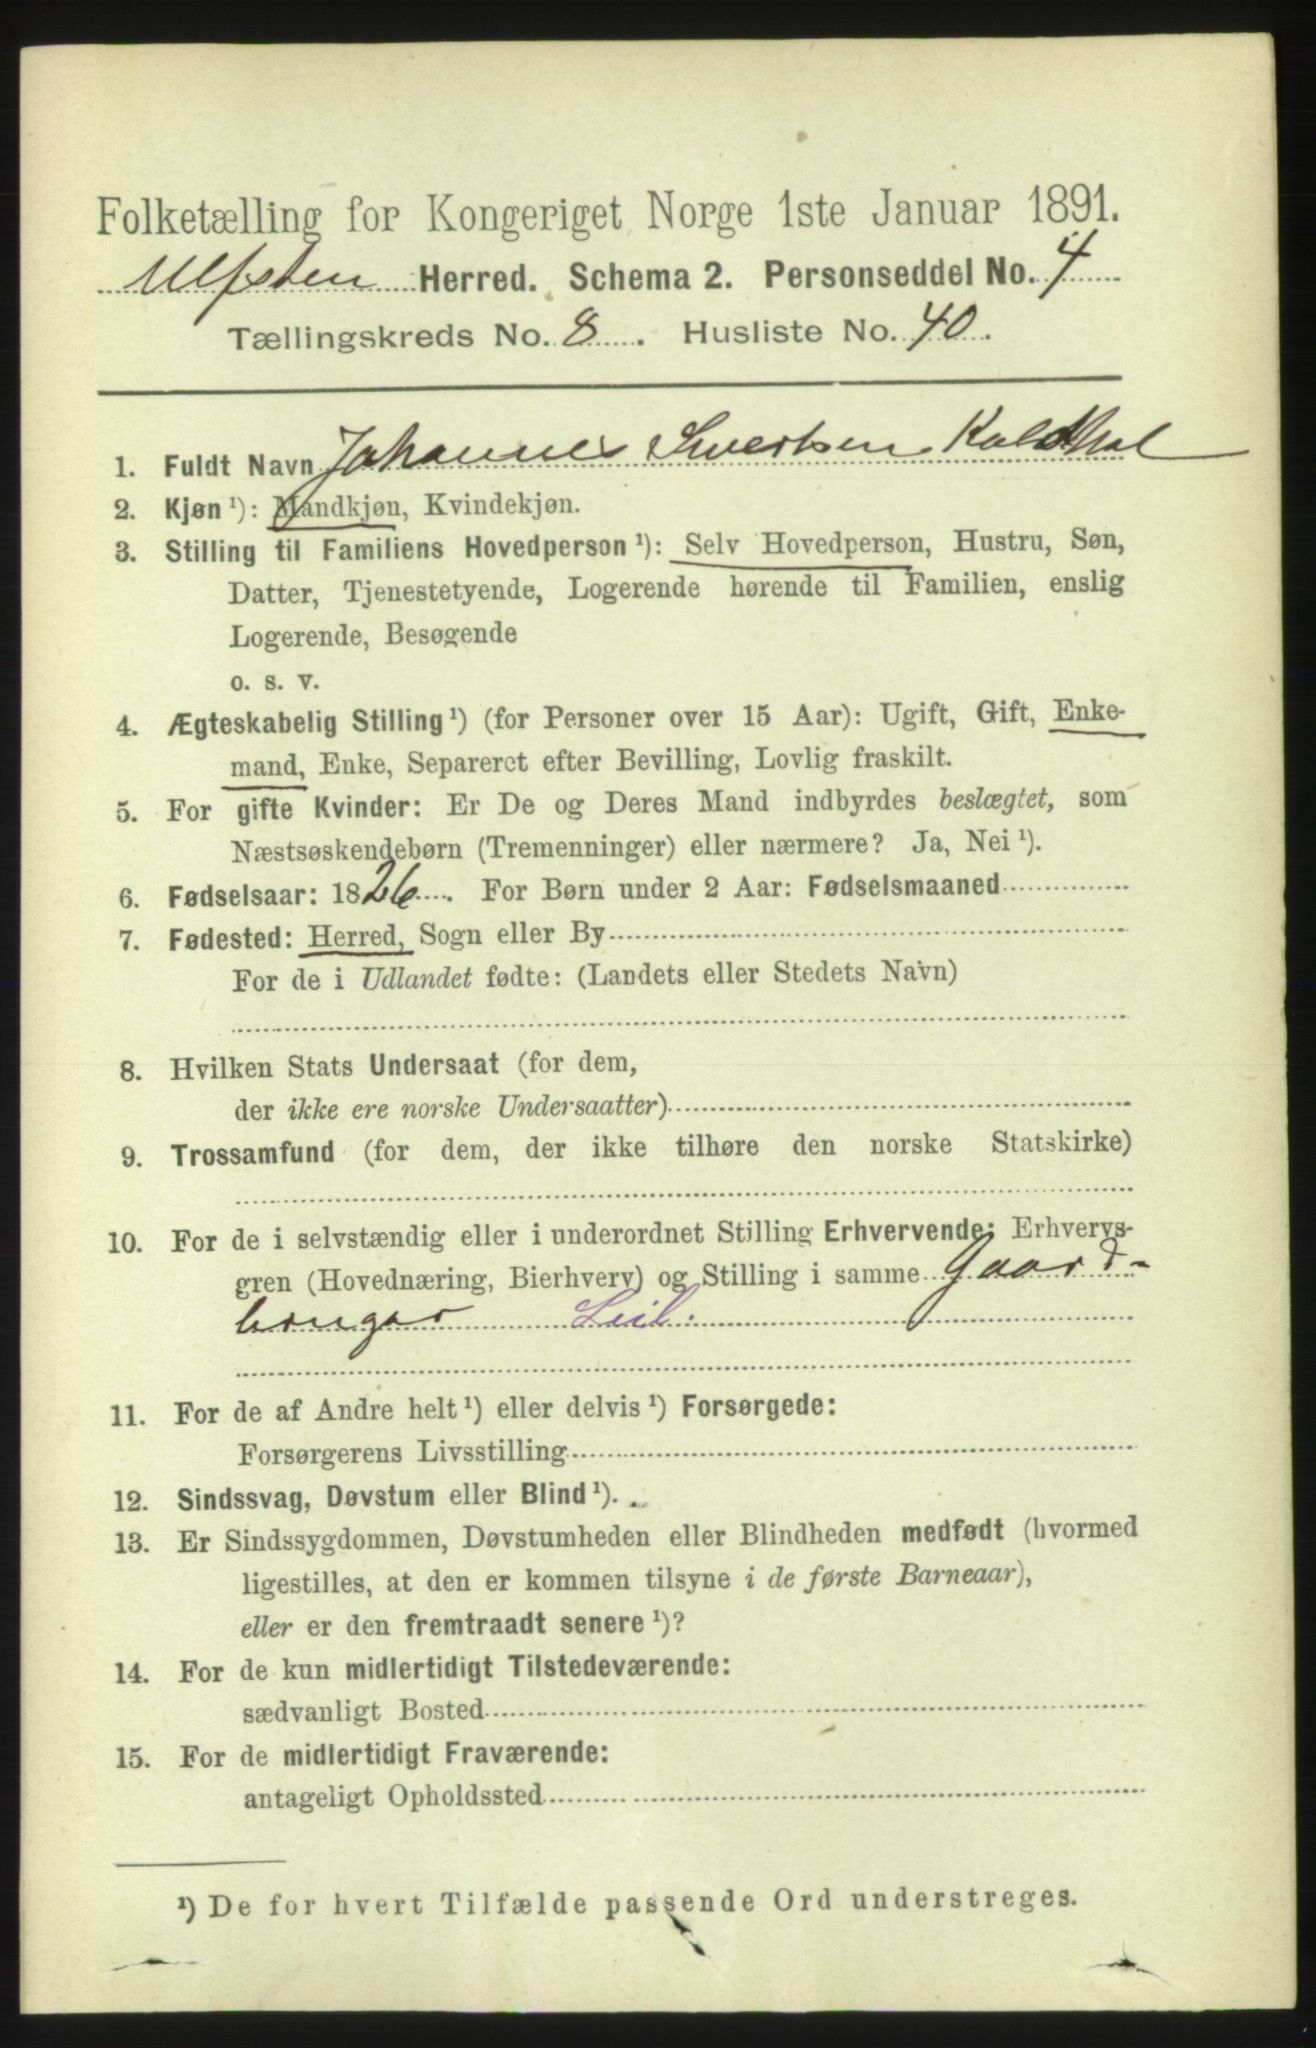 Folketælling for Kongeriget Norge 1ste Januar 1891.
Ulfsten Herred. Schema 2. Personseddel No. 4
Tællingskreds No. 8. Husliste No. 40.
1. Fuldt Navn Johannes Sivertsen Koldhol
2. Kjøn ¹): Mandkjøn, Kvindekjøn.
3. Stilling til Familiens Hovedperson ¹): Selv Hovedperson, Hustru, Søn,
Datter, Tjenestetyende, Logerende hørende til Familien, enslig
Logerende, Besøgende
o. s. v.
4. Ægteskabelig Stilling ¹) (for Personer over 15 Aar): Ugift, Gift, Enke-
mand, Enke, Separeret efter Bevilling, Lovlig fraskilt.
5. For gifte Kvinder: Er De og Deres Mand indbyrdes beslægtet, som
Næstsøskendebørn (Tremenninger) eller nærmere? Ja, Nei ¹).
6. Fødselsaar: 1826. For Børn under 2 Aar: Fødselsmaaned
7. Fødested: Herred, Sogn eller By
For de i Udlandet fødte: (Landets eller Stedets Navn)
8. Hvilken Stats Undersaat (for dem,
der ikke ere norske Undersaatter)
9. Trossamfund (for dem, der ikke tilhøre den norske Statskirke)
10. For de i selvstændig eller i underordnet Stilling Erhvervende: Erhvervs-
gren (Hovednæring, Bierhverv) og Stilling i samme Gaard-
bruger Leil.
11. For de af Andre helt ¹) eller delvis ¹) Forsørgede:
Forsørgerens Livsstilling
12. Sindssvag, Døvstum eller Blind ¹).
13. Er Sindssygdommen, Døvstumheden eller Blindheden medfødt (hvormed
ligestilles, at den er kommen tilsyne i de første Barneaar),
eller er den fremtraadt senere ¹)?
14. For de kun midlertidigt Tilstedeværende:
sædvanligt Bosted
15. For de midlertidigt Fraværende:
antageligt Opholdssted
¹) De for hvert Tilfælde passende Ord understreges.